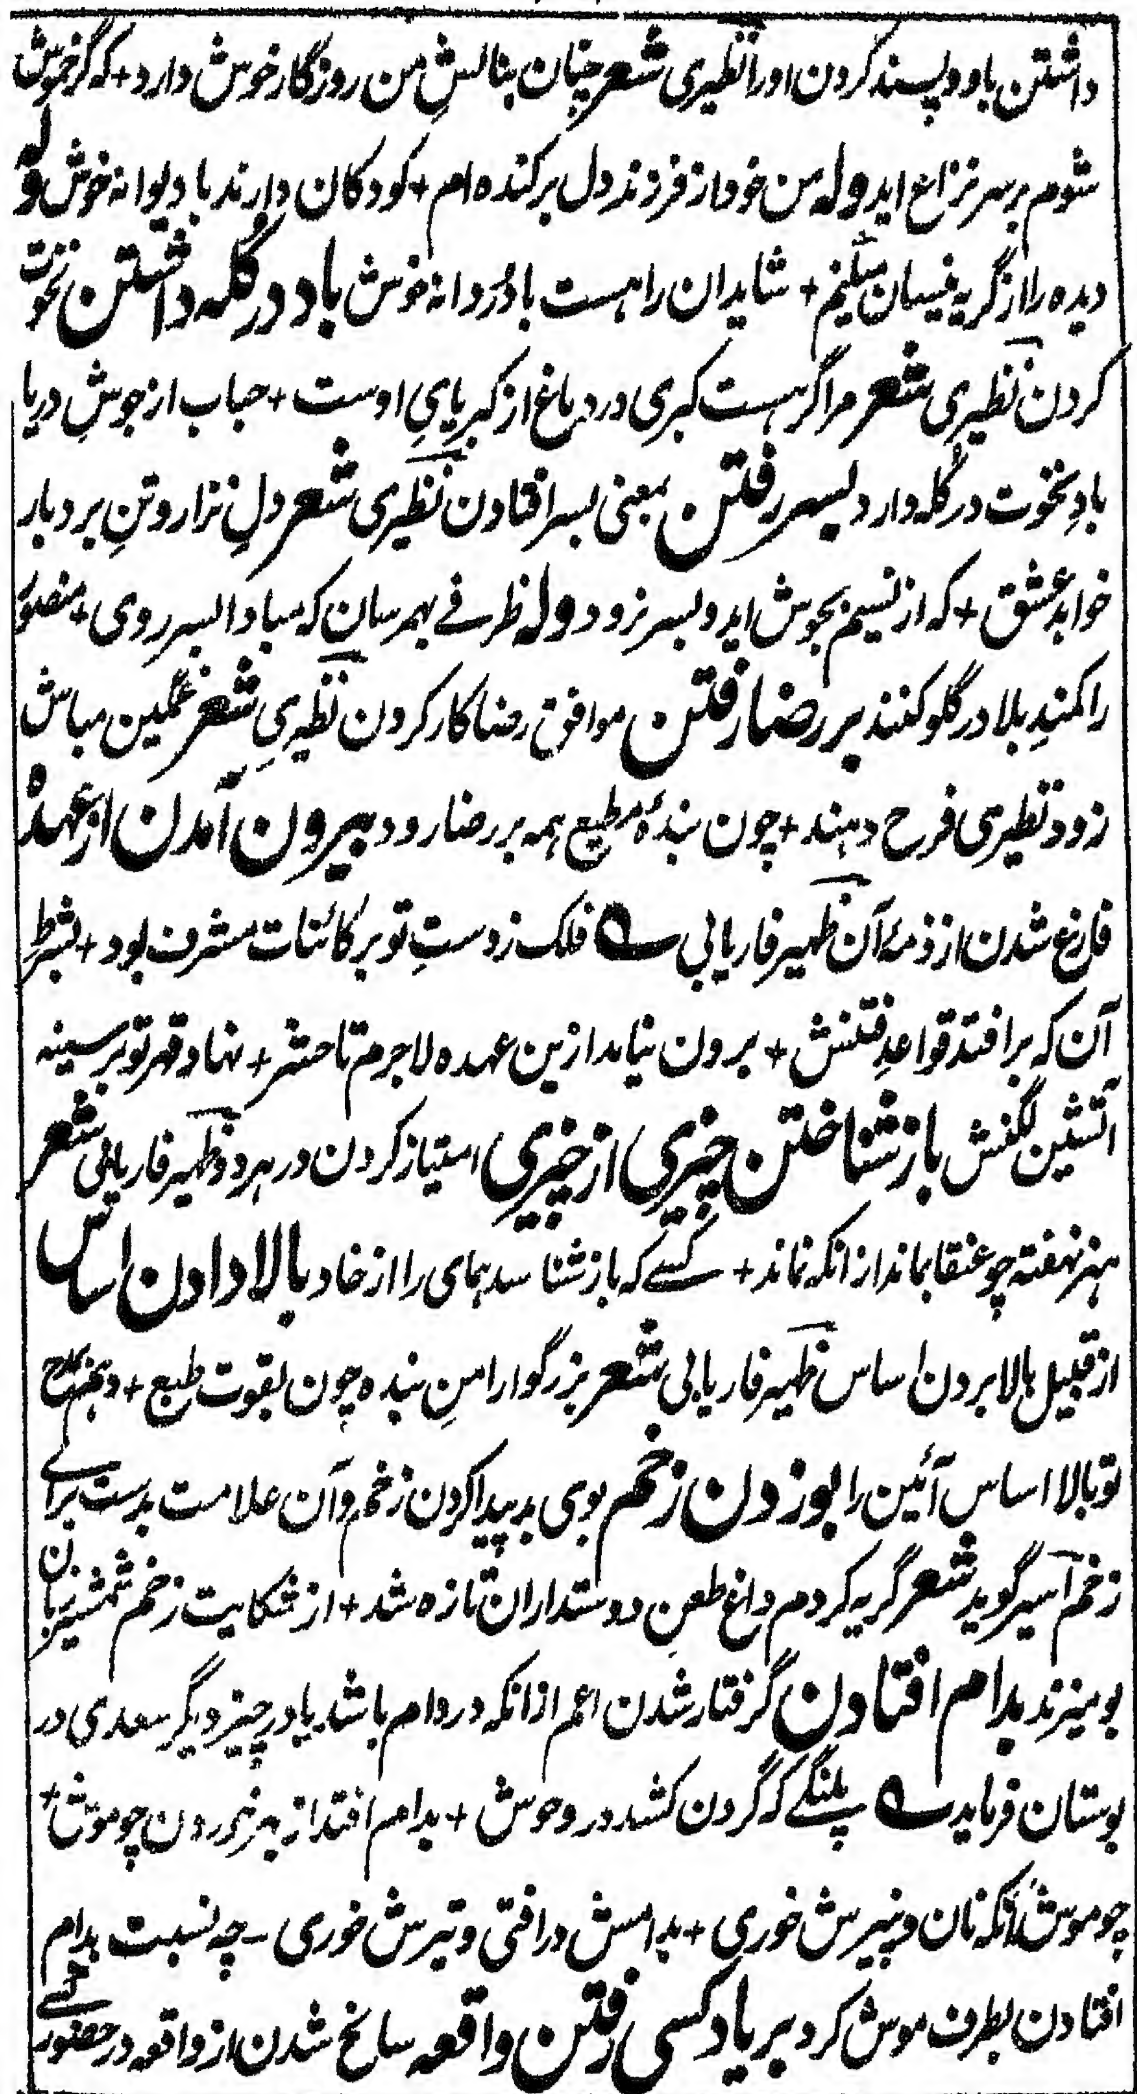 داشتن باو و پسند کردن او را نظیری شعر چنان بنالش من روزگار خوش دارد + که گر خموش
شوم بر سر نزاع اید وله من خود از فرزند دل برکنده ام + کودکان دارند با دیوانه خوش وله
دیده را از گریه نیسان میکنم + شاید ان را هست با دردانه خوش باد در کله داشتن نخوت
کردن نظیری شعر مرا گر هست کبری در دماغ از کبریایی اوست + حباب از جوش دریا
باد نخوت در کله دارد بسر رفتن بمعنی بسر افتادن نظیری شعر دل نزار و تن بردبار
خواهد عشق + که از نسیم بجوش اید و بسر نرود وله ظرفے بهمرسان که مبادا بسر روی + منصور
را کمند بلا در گلو کنند بر رضا رفتن موافق رضا کار کردن نظیری شعر غمگین مباش
زود نظیری فرح دهند + چون بندهٔ مطیع همه بر رضا رود بیرون آمدن از عهده
فارغ شدن از ذمهٔ آن ظهیر فاریابی ؎ فلک ز دست تو بر کائنات مشرف بود + بشرط
آن که برافتد قواعد فتنش + برون نیامد ازین عهده لاجرم تا حشر + نهاد قهر تو بر سینه
آتشین لگنش باز شناختن چیزی از چیزی امتیاز کردن در هر دو ظهیر فاریابی شعر
هنر نهفته چو عنقا بماند از انکه نماند + کسے که باز شناسد همای را از خاد بالا دادن اساس
از قبیل بالا بردن اساس ظهیر فاریابی شعر بزرگوارا من بنده چون بقوت طبع + دهم بمدح
تو بالا اساس آئین را بوزدن زخم بوی بد پیدا کردن زخم و آن علامت بدست برائے
زخم آسیر گوید شعر گریه کردم داغ طعن دوستداران تازه شد + از شکایت زخم شمشیر زبان
بو میزند بدام افتادن گرفتار شدن اعم از انکه در دام باشد یا در چیز دیگر سعدی در
بوستان فرماید ؎ پلنگے که گردن کشد در وحوش + بدام افتد از بهر خوردن چو موش +
چو موش آنکه نان و پنیرش خوری + بدامش در افتی و تیرش خوری - چه نسبت بدام
افتادن بطرف موش کرد بر یاد کسی رفتن واقعه سانح شدن از واقعه در حضور کسے